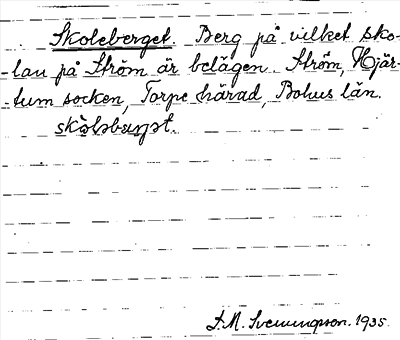 Skoleberget. Berg på vilket sko-
lan på Ström är belägen. Ström, Hjär-
tum socken, Torpe härad, Bohus län.
J. M. Svenungson. 1935.